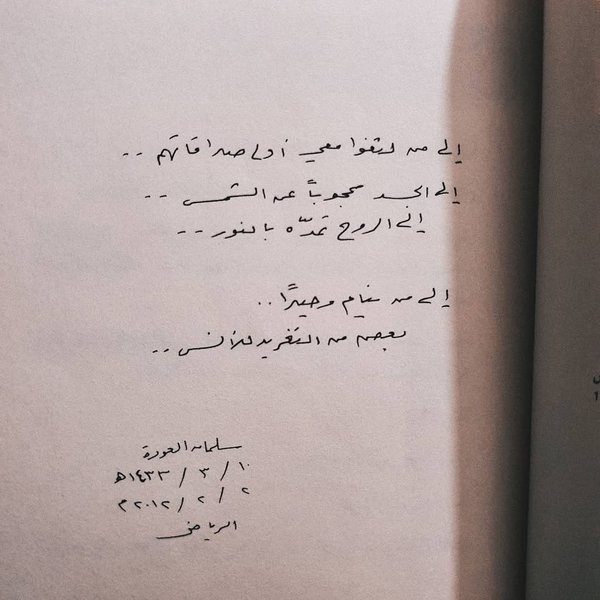 إلى من لثغوا معي أولى صداقاتهم ..
إلى الجسد محجوباً عن الشمس ..
إلى الروح تمدّه بالنور ..
إلى من ينام وحيدًا ..
بعض من التغريد للأنس ..
سلمان العودة
١٠ / ٣ / ١٤٣٣هـ
٢ / ٢ / ٢٠١٢م
الرياض